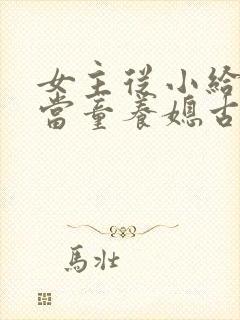 女主從小給
當童養媳古
馬壯